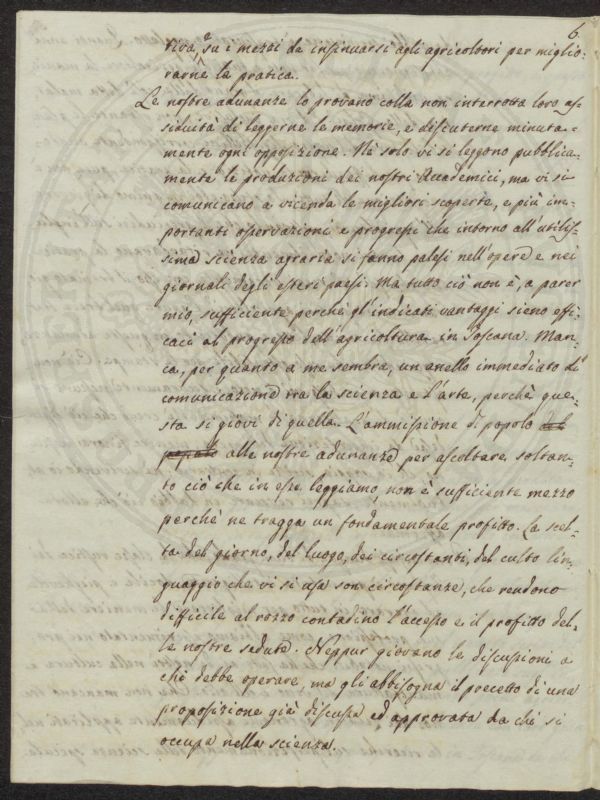 6.
tiva, su i mezzi da insinuarsi agli agricoltori per miglio-
rarne la pratica.
Le nostre adunanze lo provano colla non interrotta loro as-
siduità di leggerne le memorie, e discuterne minuta-
mente ogni opposizione. Nè solo vi si leggono pubblica-
mente le produzioni dei nostri Accademici, ma vi si
comunicano a vicenda le migliori scoperte, e più im-
portanti osservazioni e progressi che intorno all'utilis-
sima scienza agraria si fanno palesi nell'opere e nei
giornali degli esteri paesi. Ma tutto ciò non è, a parer
mio, sufficiente perchè gl'indicati vantaggi sieno effi-
caci al progresso dell'agricoltura in Toscana. Man-
ca, per quanto a me sembra, un anello immediato di
comunicazione tra la scienza e l'arte, perchè que-
sta si giovi di quella. L'ammissione di popolo del
popolo alle nostre adunanze per ascoltare soltan-
to ciò che in esse leggiamo, non è sufficiente mezzo
perchè ne tragga un fondamentale profitto. La scel-
ta del giorno, del luogo, dei circostanti, del culto lin-
guaggio che vi si usa son circostanze, che rendono
difficile al rozzo contadino l'accesso e il profitto del-
le nostre sedute. Neppur giovano le discussioni a
chi debbe operare, ma gli abbisogna il precetto di una
proposizione già discussa ed approvata da chi si
occupa nella scienza.